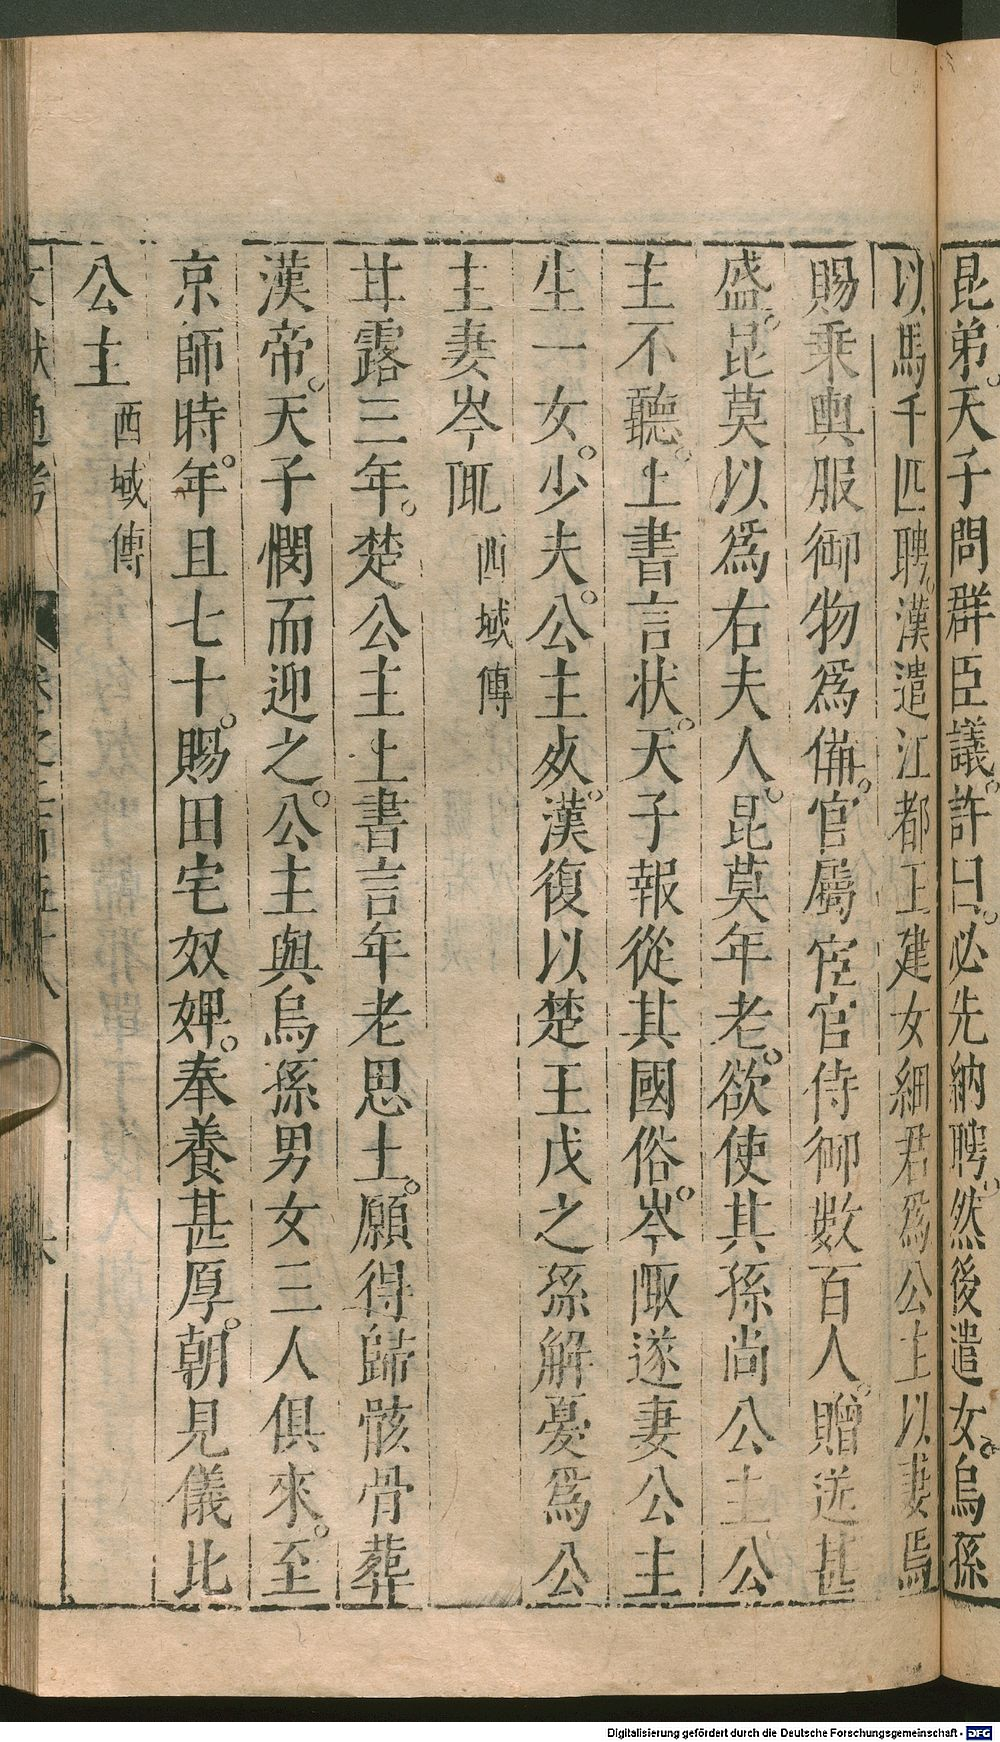 昆弟。天子問群臣議。許曰。必先納聘。然後遣女。烏孫
以馬千匹聘。漢遣江都王建女細君爲公主以妻焉
賜乘輿服御物爲備。官屬宦官侍御數百人。贈送甚
盛。昆莫以爲右夫人。昆莫年老。欲使其孫尚公主公
主不聽。上書言狀。天子報從其國俗。岑陬遂妻公主
生一女。少夫。公主死。漢復以楚王戊之孫解憂爲公
主妻岑陬 西域傳
甘露三年。楚公主上書言年老思土。願得歸骸骨葬
漢帝。天子憫而迎之。公主與烏孫男女三人俱來。至
京師時年。且七十。賜田宅奴婢。奉養甚厚。朝見儀比
公主 西域傳
文獻通考 卷之二百五十八
Digitalisierung gefördert durch die Deutsche Forschungsgemeinschaft - DFG